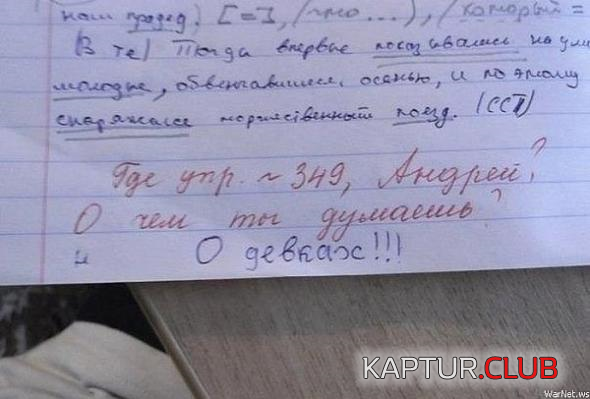 наш прадед, [=], (что...), (который =
(В те) Тогда впервые показывались на ули
молодые, обвенчавшиеся осенью, и по этому
снаряжался торжественный поезд. (ССП)
Где упр. ~ 349, Андрей?
О чем ты думаешь?
О девках!!!
KAPTUR.CLUB
WarNet.ws